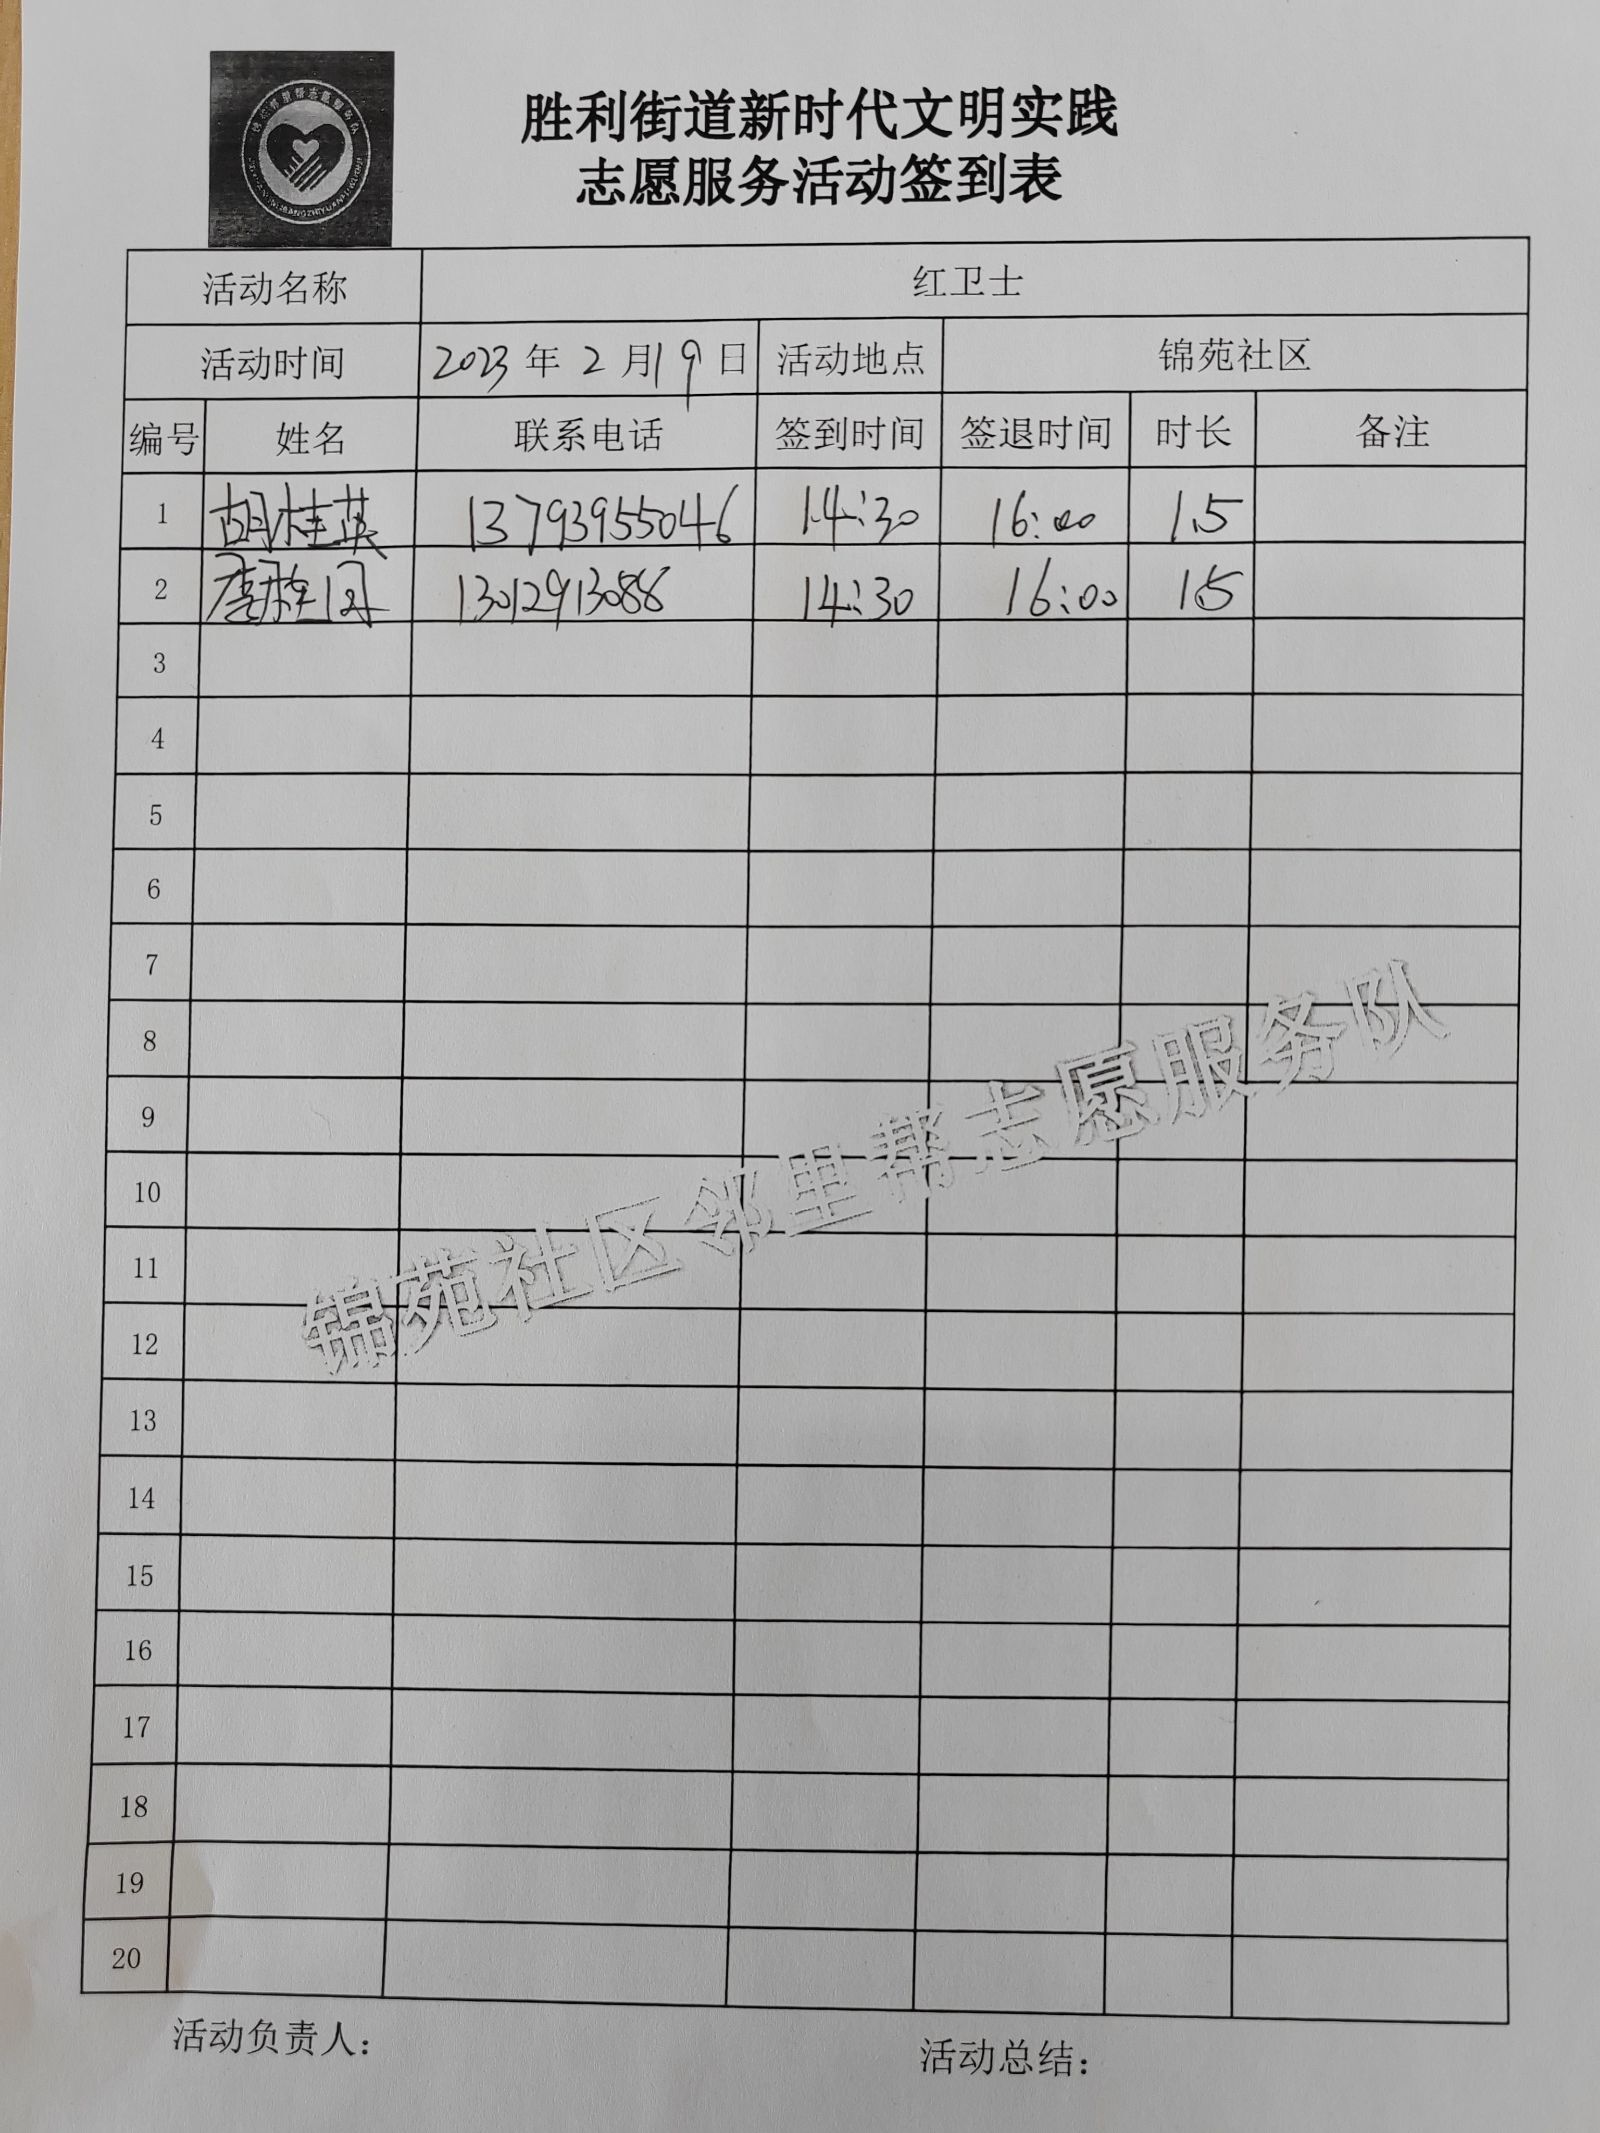 胜利街道新时代文明实践
志愿服务活动签到表
活动名称 红卫士
活动时间 2023年2月19日 活动地点 锦苑社区
编号 姓名 联系电话 签到时间 签退时间 时长 备注
1 胡桂英 13793955046 14:30 16:00 1.5
2 13012913088 14:30 16:00 1.5
3
4
5
6
7
8
9
10
11
12
13
14
15
16
17
18
19
20
锦苑社区邻里帮志愿服务队
活动负责人： 活动总结：